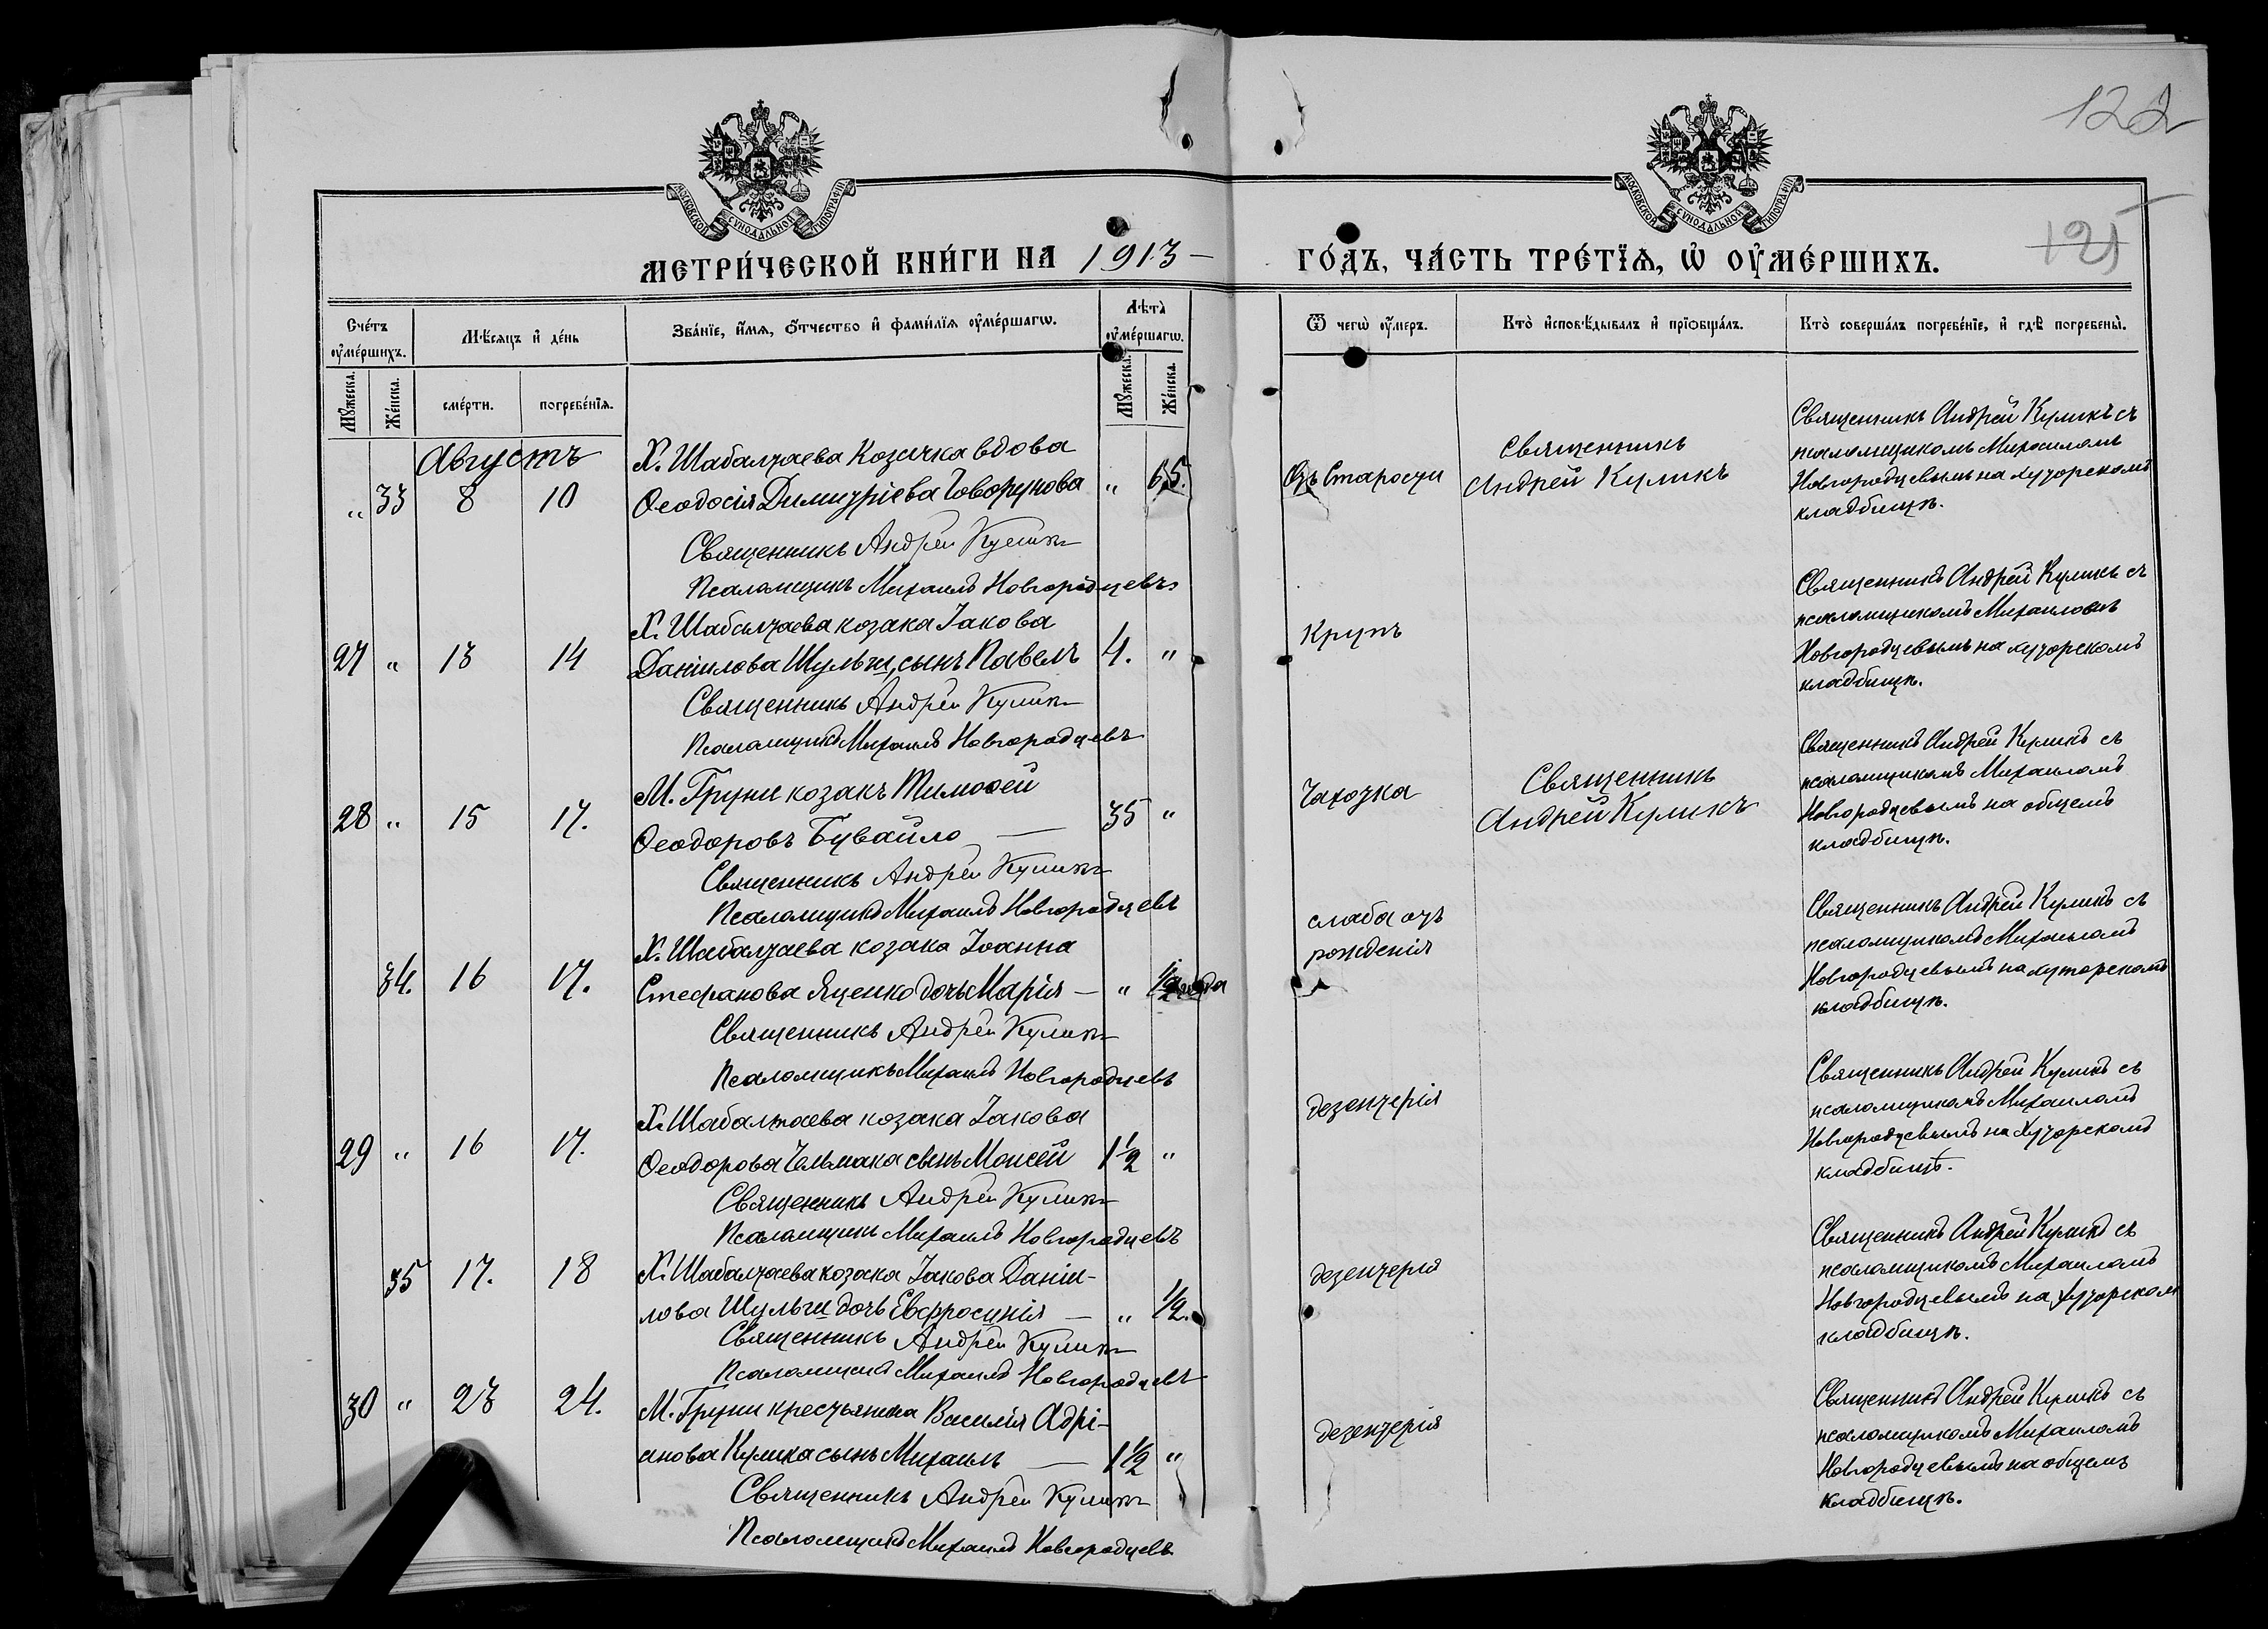 122
121
МОСКОВСКОЙ СѴНОДАЛЬНОЙ ТИПОГРАФІИ
МОСКОВСКОЙ СѴНОДАЛЬНОЙ ТИПОГРАФІИ
МЕТРИ́ЧЕСКОЙ КНИ́ГИ НА 1913 —
ГО́ДЪ, ЧА́СТЬ ТРЕ́ТЇѦ, Ѡ҆ ОУ҆МЕ́РШИХЪ.
Сче́тъ оу҆ме́ршихъ.
Мꙋ́жеска.
Же́нска.
Мѣ́сѧцъ и҆ де́нь
сме́рти.
погребе́нїѧ.
Зва́нїе, и҆́мѧ, ѻ҆́тчество и҆ фами́лїѧ оу҆ме́ршагѡ.
Лѣ́та оу҆ме́ршагѡ.
Мꙋ́жеска.
Же́нска.
Ѿ чегѡ̀ оу҆́меръ.
Кто̀ и҆сповѣ́дывалъ и҆ прїѡбща́лъ.
Кто̀ соверша́лъ погребе́нїе, и҆ гдѣ̀ погребены̀.
Августъ
" 33 8 10
Х. Шабалтаева Козачка вдова
Ѳеодосія Димитріева Говорунова " 65.
Священникъ Андрей Куликъ
Псаломщикъ Михаилъ Новгородцевъ
Отъ Старости
Священникъ
Андрей Куликъ
Священникъ Андрей Куликъ съ
псаломщикомъ Михаиломъ
Новгородцевымъ на хуторскомъ
кладбищѣ.
27 " 13 14
Х. Шабалтаева козака Іакова
Даніилова Шульги, сынъ Павелъ 4. "
Священникъ Андрей Куликъ
Псаломщикъ Михаилъ Новгородцевъ
Крупъ
Священникъ Андрей Куликъ съ
псаломщикомъ Михаиломъ
Новгородцевымъ на хуторскомъ
кладбищѣ.
28 " 15 17.
М. Груни козакъ Тимоѳей
Ѳеодоровъ Бувайло — 35 "
Священникъ Андрей Куликъ
Псаломщикъ Михаилъ Новгородцевъ
Чахотка
Священникъ
Андрей Куликъ
Священникъ Андрей Куликъ съ
псаломщикомъ Михаиломъ
Новгородцевымъ на общемъ
кладбищѣ.
34. 16 17.
Х. Шабалтаева козака Іоанна
Стефанова Яценко дочь Марія — " 1/2
Священникъ Андрей Куликъ
Псаломщикъ Михаилъ Новгородцевъ
слаба отъ
рожденія
Священникъ Андрей Куликъ съ
псаломщикомъ Михаиломъ
Новгородцевымъ на хуторскомъ
кладбищѣ.
29 " 16 17.
Х. Шабалтаева козака Іакова
Ѳеодорова Чельмака сынъ Моисей 1 1/2 "
Священникъ Андрей Куликъ
Псаломщикъ Михаилъ Новгородцевъ
дезентерія
Священникъ Андрей Куликъ съ
псаломщикомъ Михаиломъ
Новгородцевымъ на хуторскомъ
кладбищѣ.
35 17. 18
Х. Шабалтаева козака Іакова Даніи-
лова Шульги дочь Евфросинія — " 1/2.
Священникъ Андрей Куликъ
Псаломщикъ Михаилъ Новгородцевъ
дезентерія
Священникъ Андрей Куликъ съ
псаломщикомъ Михаиломъ
Новгородцевымъ на хуторском
кладбищѣ.
30 " 23 24.
М. Груни крестьянина Василія Адрі-
анова Кулика сынъ Михаилъ — 1 1/2 "
Священникъ Андрей Куликъ
Псаломщикъ Михаилъ Новгородцевъ
дезентерія
Священникъ Андрей Куликъ съ
псаломщикомъ Михаиломъ
Новгородцевымъ на общемъ
кладбищѣ.